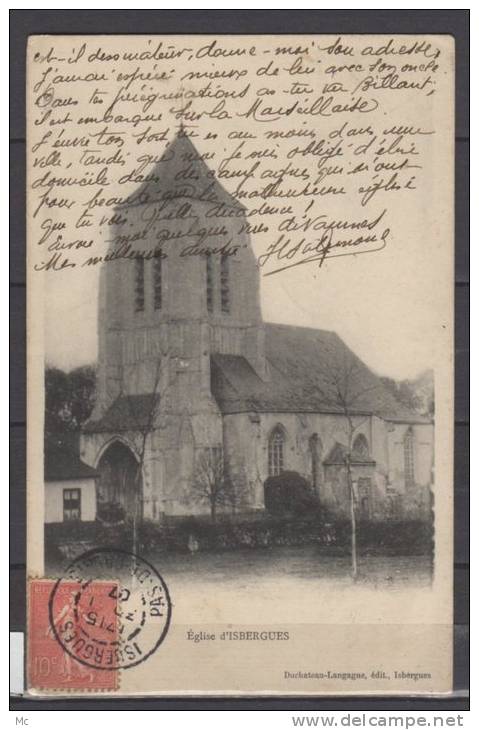 est-il dessinateur, donne-moi son adresse,
J'aurai espéré mieux de lui avec son oncle.
Dans tes pérégrinations as-tu vu Billant,
il est embarqué sur la Marseillaise
J'envie ton sort tu es au moins dans une
ville, tandis que moi je suis obligé d'élire
domicile dans des campagnes qui n'ont
pour beauté que la malheureuse église
que tu vois. Quelle décadence!
Envoie moi quelques vues de Vannes
Mes meilleures amitiés
Église d'ISBERGUES
Duchateau-Langagne, édit., Isbergues
ISBERGUES
PAS-DE-CALAIS
07
10c
Mc
www.delcampe.net